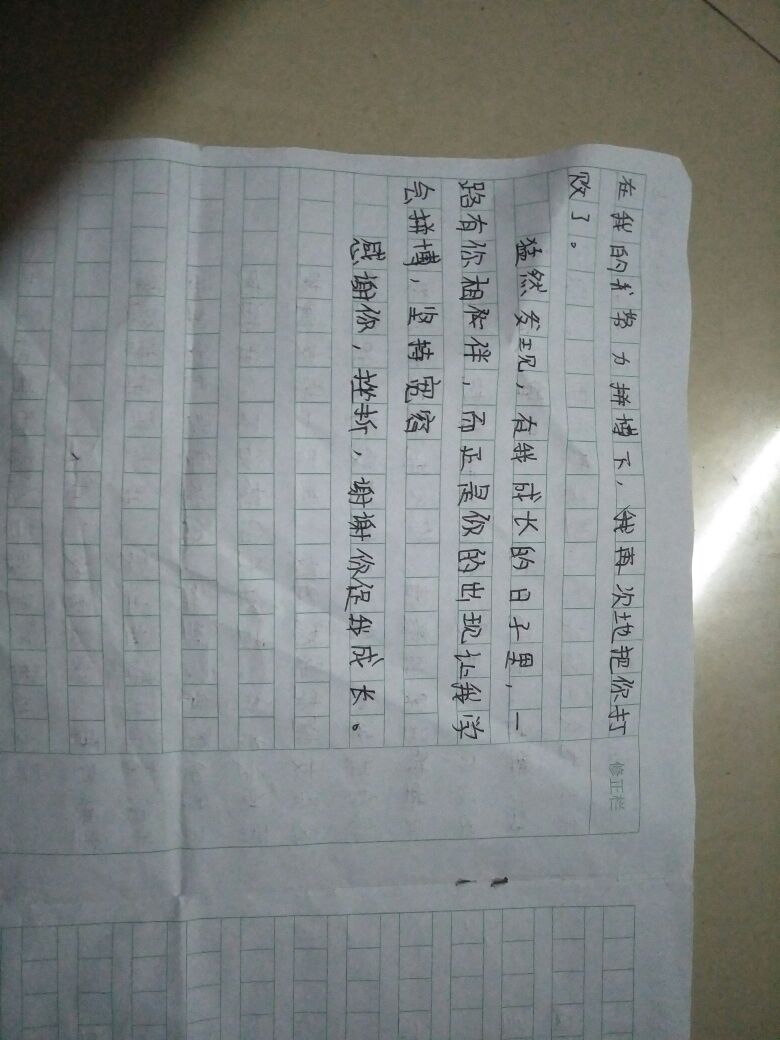 在我的努力拼博下，我再次地把你打
败了。
猛然发现，在我成长的日子里，一
路有你相伴，而正是你的出现让我学
会拼博，坚持宽容
感谢你，挫折，谢谢你促我成长。
修正栏